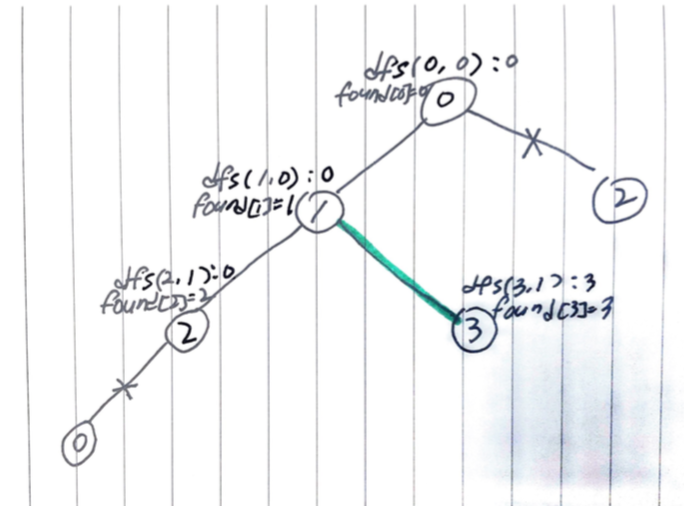 dfs(0, 0) : 0
found[0]=0
0
dfs(1,0) : 0
found[1]=1
1
2
dfs(2,1):0
found[2]=2
2
dfs(3,1) : 3
found[3]=3
3
0